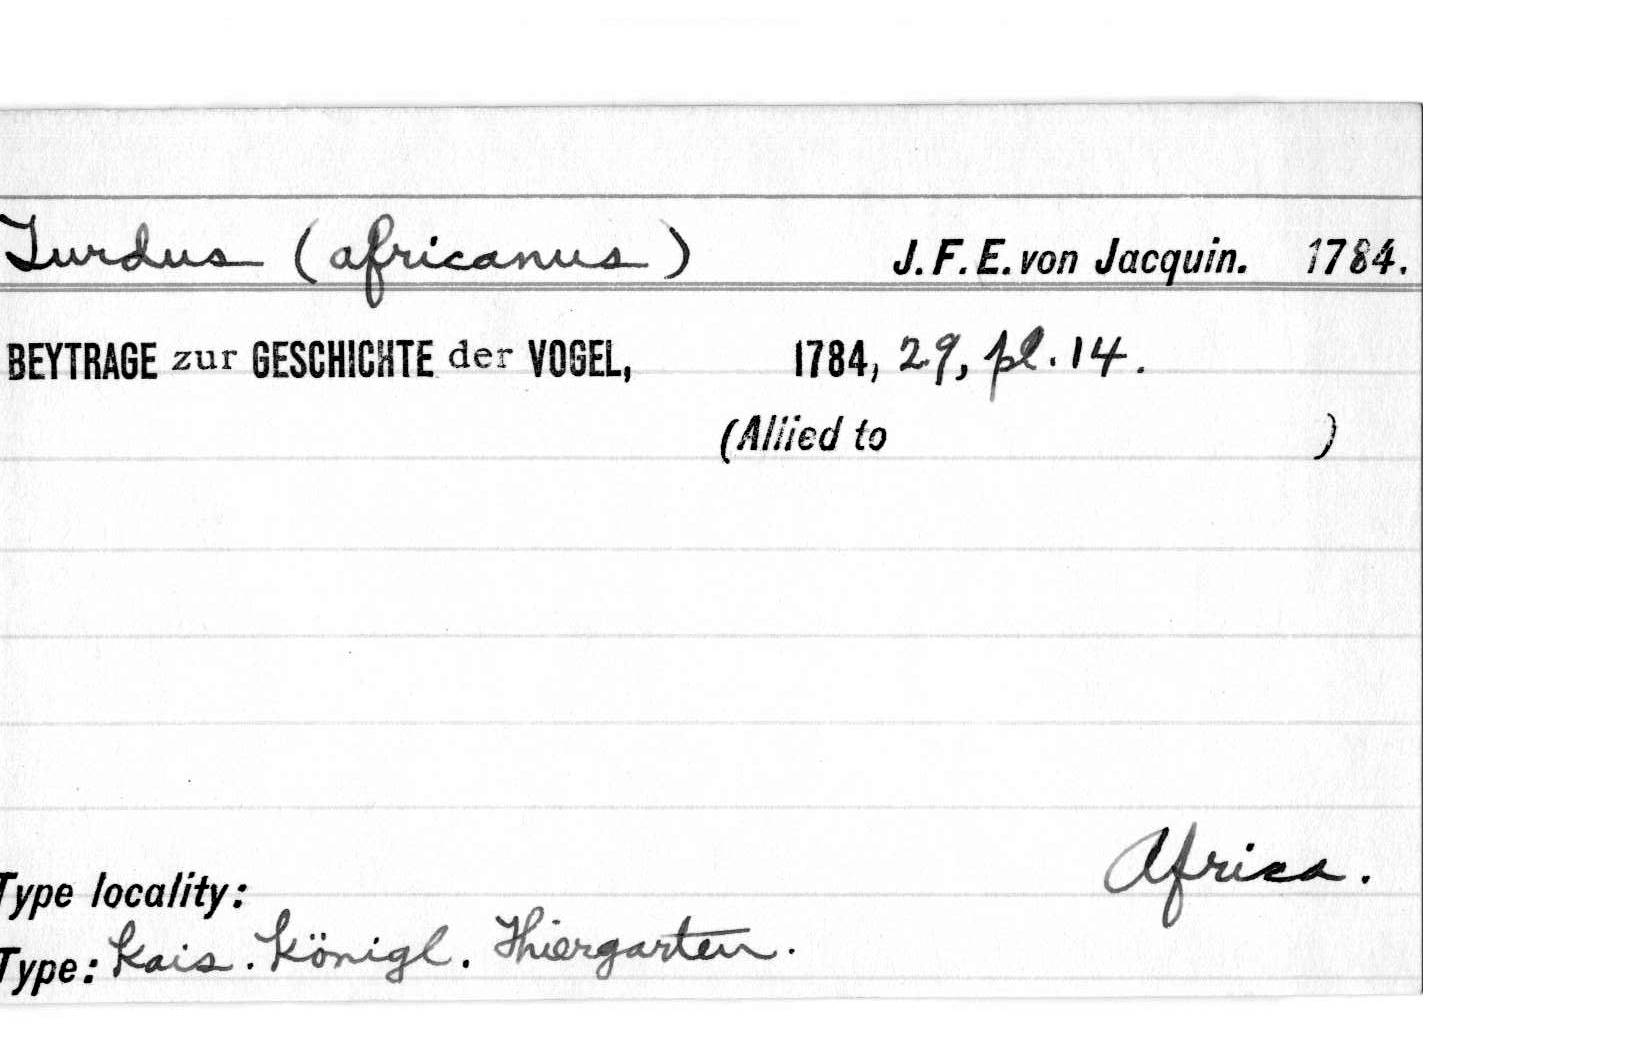 Turdus (africanus) J. F. E. von Jacquin. 1784.
BEYTRAGE zur GESCHICHTE der VOGEL, 1784, 29, pl. 14.
(Allied to )
Africa.
Type locality:
Type: Kais. Königl. Thiergarten.